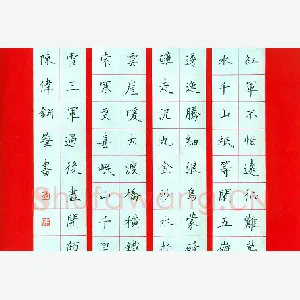 紅軍不怕遠征難萬
水千山祇等閒五嶺
逶迤騰細浪烏蒙磅
礴走泥丸金沙水拍
雲崖暖大渡橋橫鐵
索寒更喜岷山千里
雪三軍過後盡開顏
陳偉書
Shufawang.CN